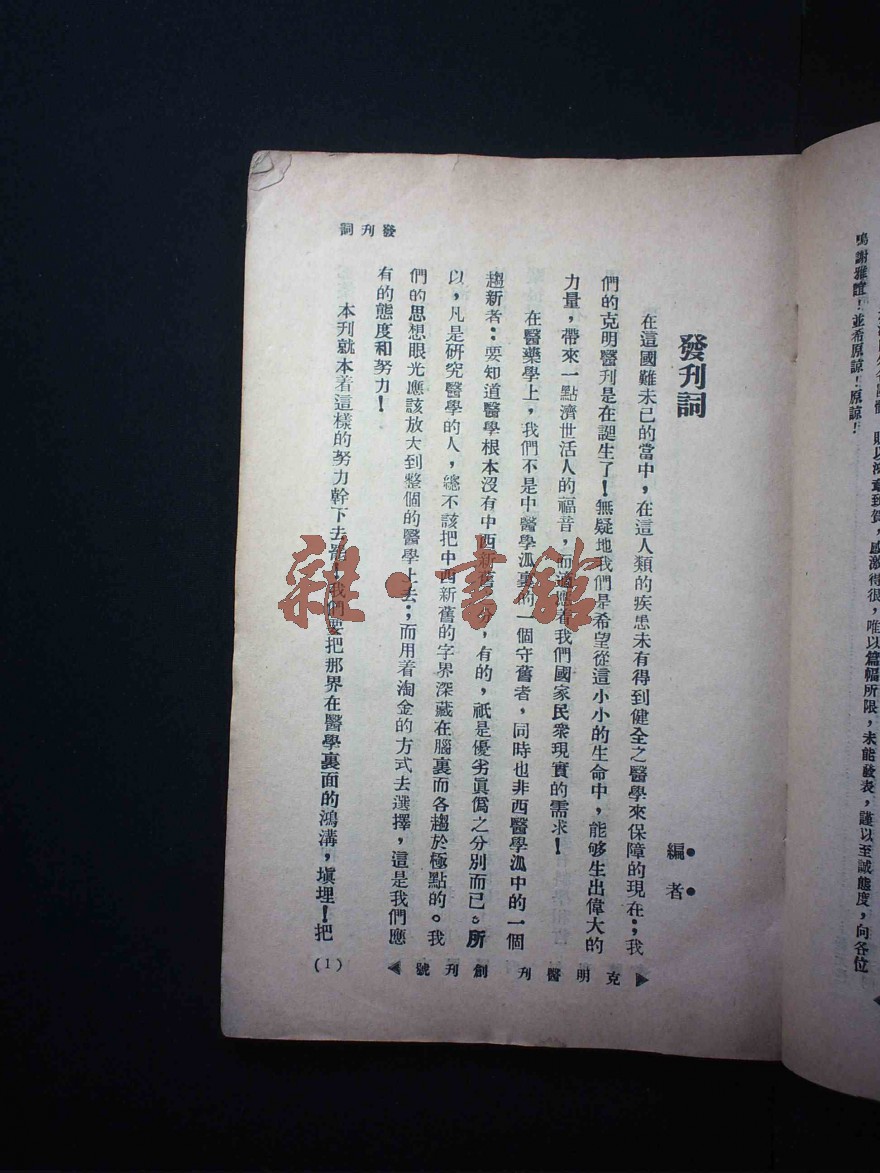 以鴻章致賀,感激得很,唯以篇幅所限,未能發表,謹以至誠態度,向各位
鳴謝雅誼!並希原諒!原諒!
發刊詞
編者
在這國難未已的當中,在這人類的疾患未有得到健全之醫學來保障的現在;我
們的克明醫刊是在誕生了!無疑地我們是希望從這小小的生命中,能够生出偉大的
力量,帶來一點濟世活人的福音,而適應着我們國家民衆現實的需求!
在醫藥學上,我們不是中醫學泒裏的一個守舊者,同時也非西醫學泒中的一個
趨新者:要知道醫學根本沒有中西新舊之分,有的,祇是優劣眞僞之分別而已。所
以,凡是研究醫學的人,總不該把中西新舊的字界深藏在腦裏而各趨於極點的。我
們的思想眼光應該放大到整個的醫學上去;而用着淘金的方式去選擇,這是我們應
有的態度和努力!
本刊就本着這樣的努力幹下去罷!我們要把那界在醫學裏面的鴻溝,塡埋!把
發刊詞
克明醫刊 創刊號
(1)
雜·書館